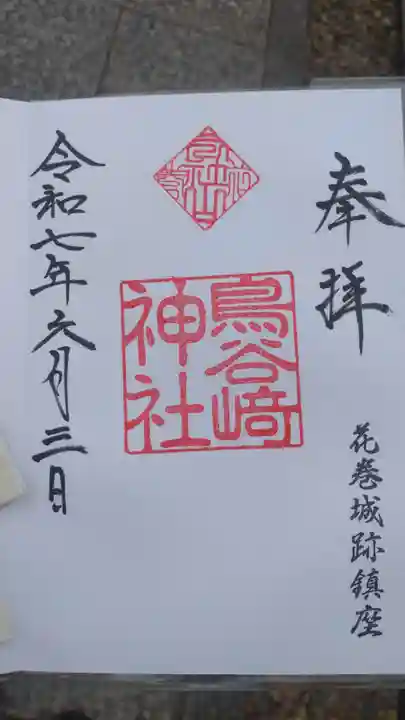 奉拝
花巻城跡鎮座
鳥谷﨑
神社
令和七年六月三日